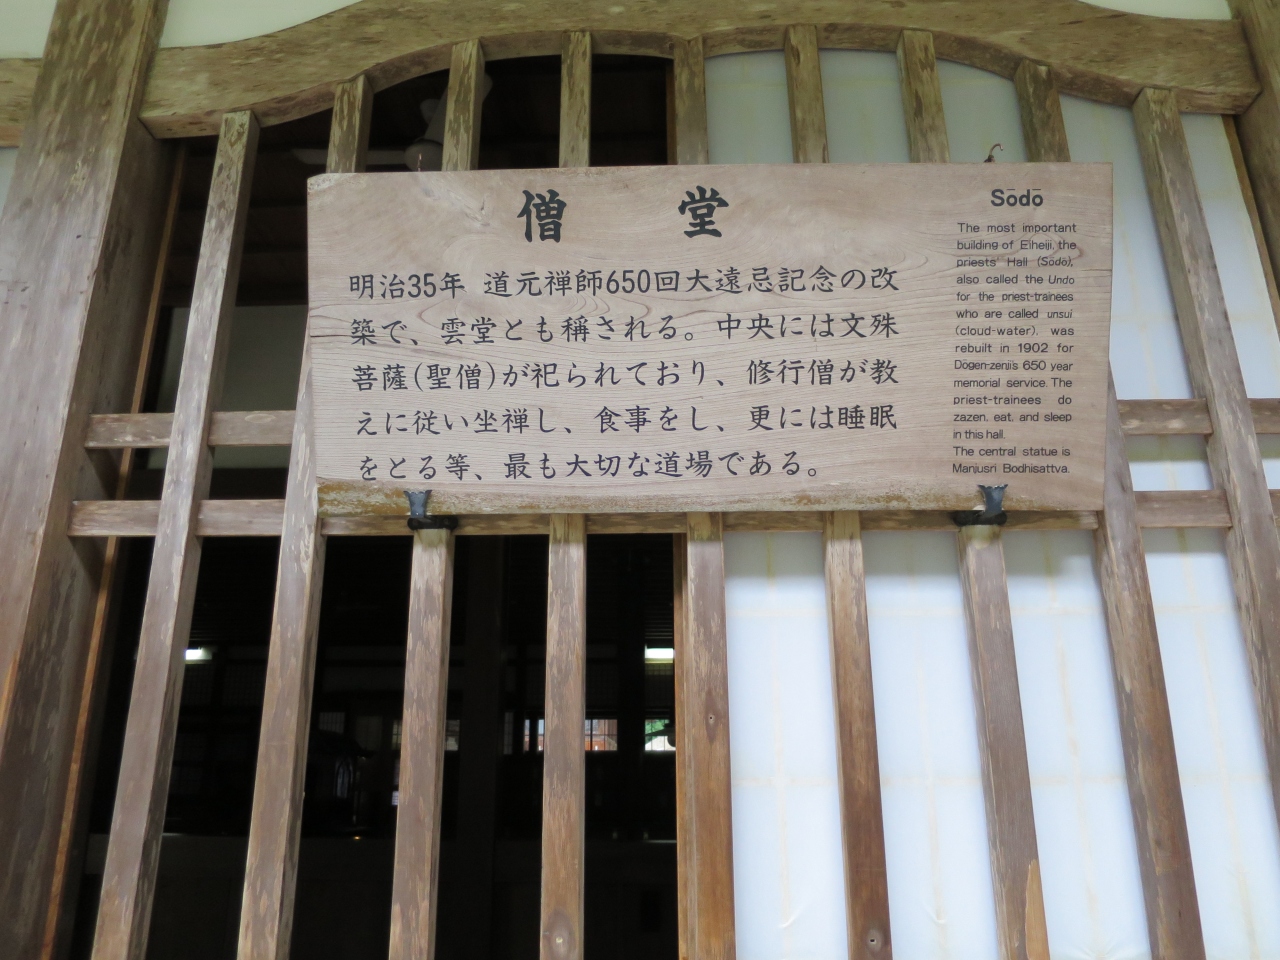 僧堂
明治35年 道元禅師650回大遠忌記念の改
築で、雲堂とも稱される。中央には文殊
菩薩(聖僧)が祀られており、修行僧が教
えに従い坐禅し、食事をし、更には睡眠
をとる等、最も大切な道場である。
Sōdō
The most important
building of Eiheiji, the
priests' Hall (Sōdō),
also called the Undo
for the priest-trainees
who are called unsui
(cloud-water), was
rebuilt in 1902 for
Dōgen-zenjis 650 year
memorial service. The
priest-trainees do
zazen, eat, and sleep
in this hall.
The central statue is
Manjusri Bodhisattva.